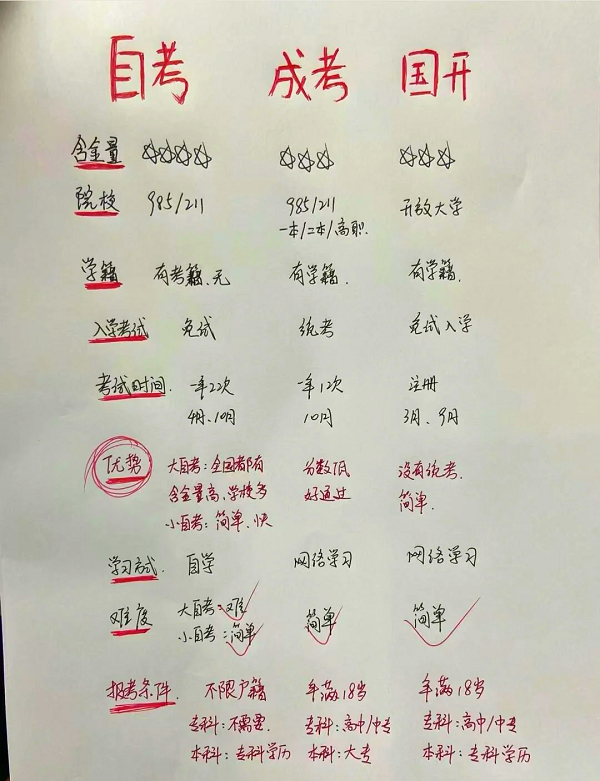 自考 成考 国开
含金量 ☆☆☆☆ ☆☆☆ ☆☆☆
院校 985/211 985/211 开放大学
一本/二本/高职.
学籍 有考籍、无 有学籍. 有学籍.
入学考试 免试 统考 免试入学
考试时间. 一年2次 一年1次 注册
4月、10月 10月 3月、9月
优势 大自考:全国都有 分数低 没有统考.
含金量高、学校多 好通过 简单.
小自考:简单、快
学习方式. 自学 网络学习 网络学习
难度 大自考:难 简单 简单
小自考:简单
报考条件. 不限户籍 年满18岁 年满18岁
专科:不需要. 专科:高中/中专 专科:高中/中专
本科:专科学历 本科:大专 本科:专科学历